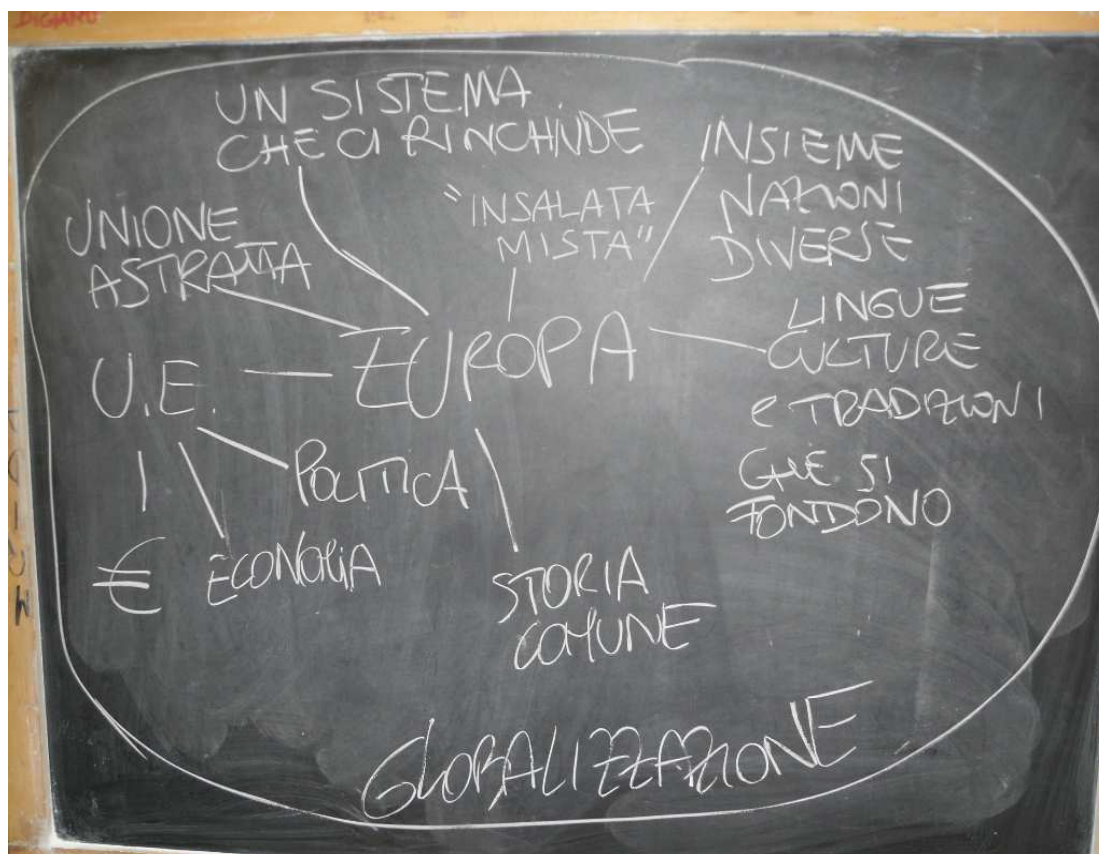 UN SISTEMA
CHE CI RINCHIUDE
"INSALATA
MISTA"
INSIEME
NAZIONI
DIVERSE
UNIONE
ASTRATTA
EUROPA
LINGUE
CULTURE
e TRADIZIONI
CHE SI
FONDONO
U.E.
POLITICA
€
ECONOMIA
STORIA
COMUNE
GLOBALIZZAZIONE